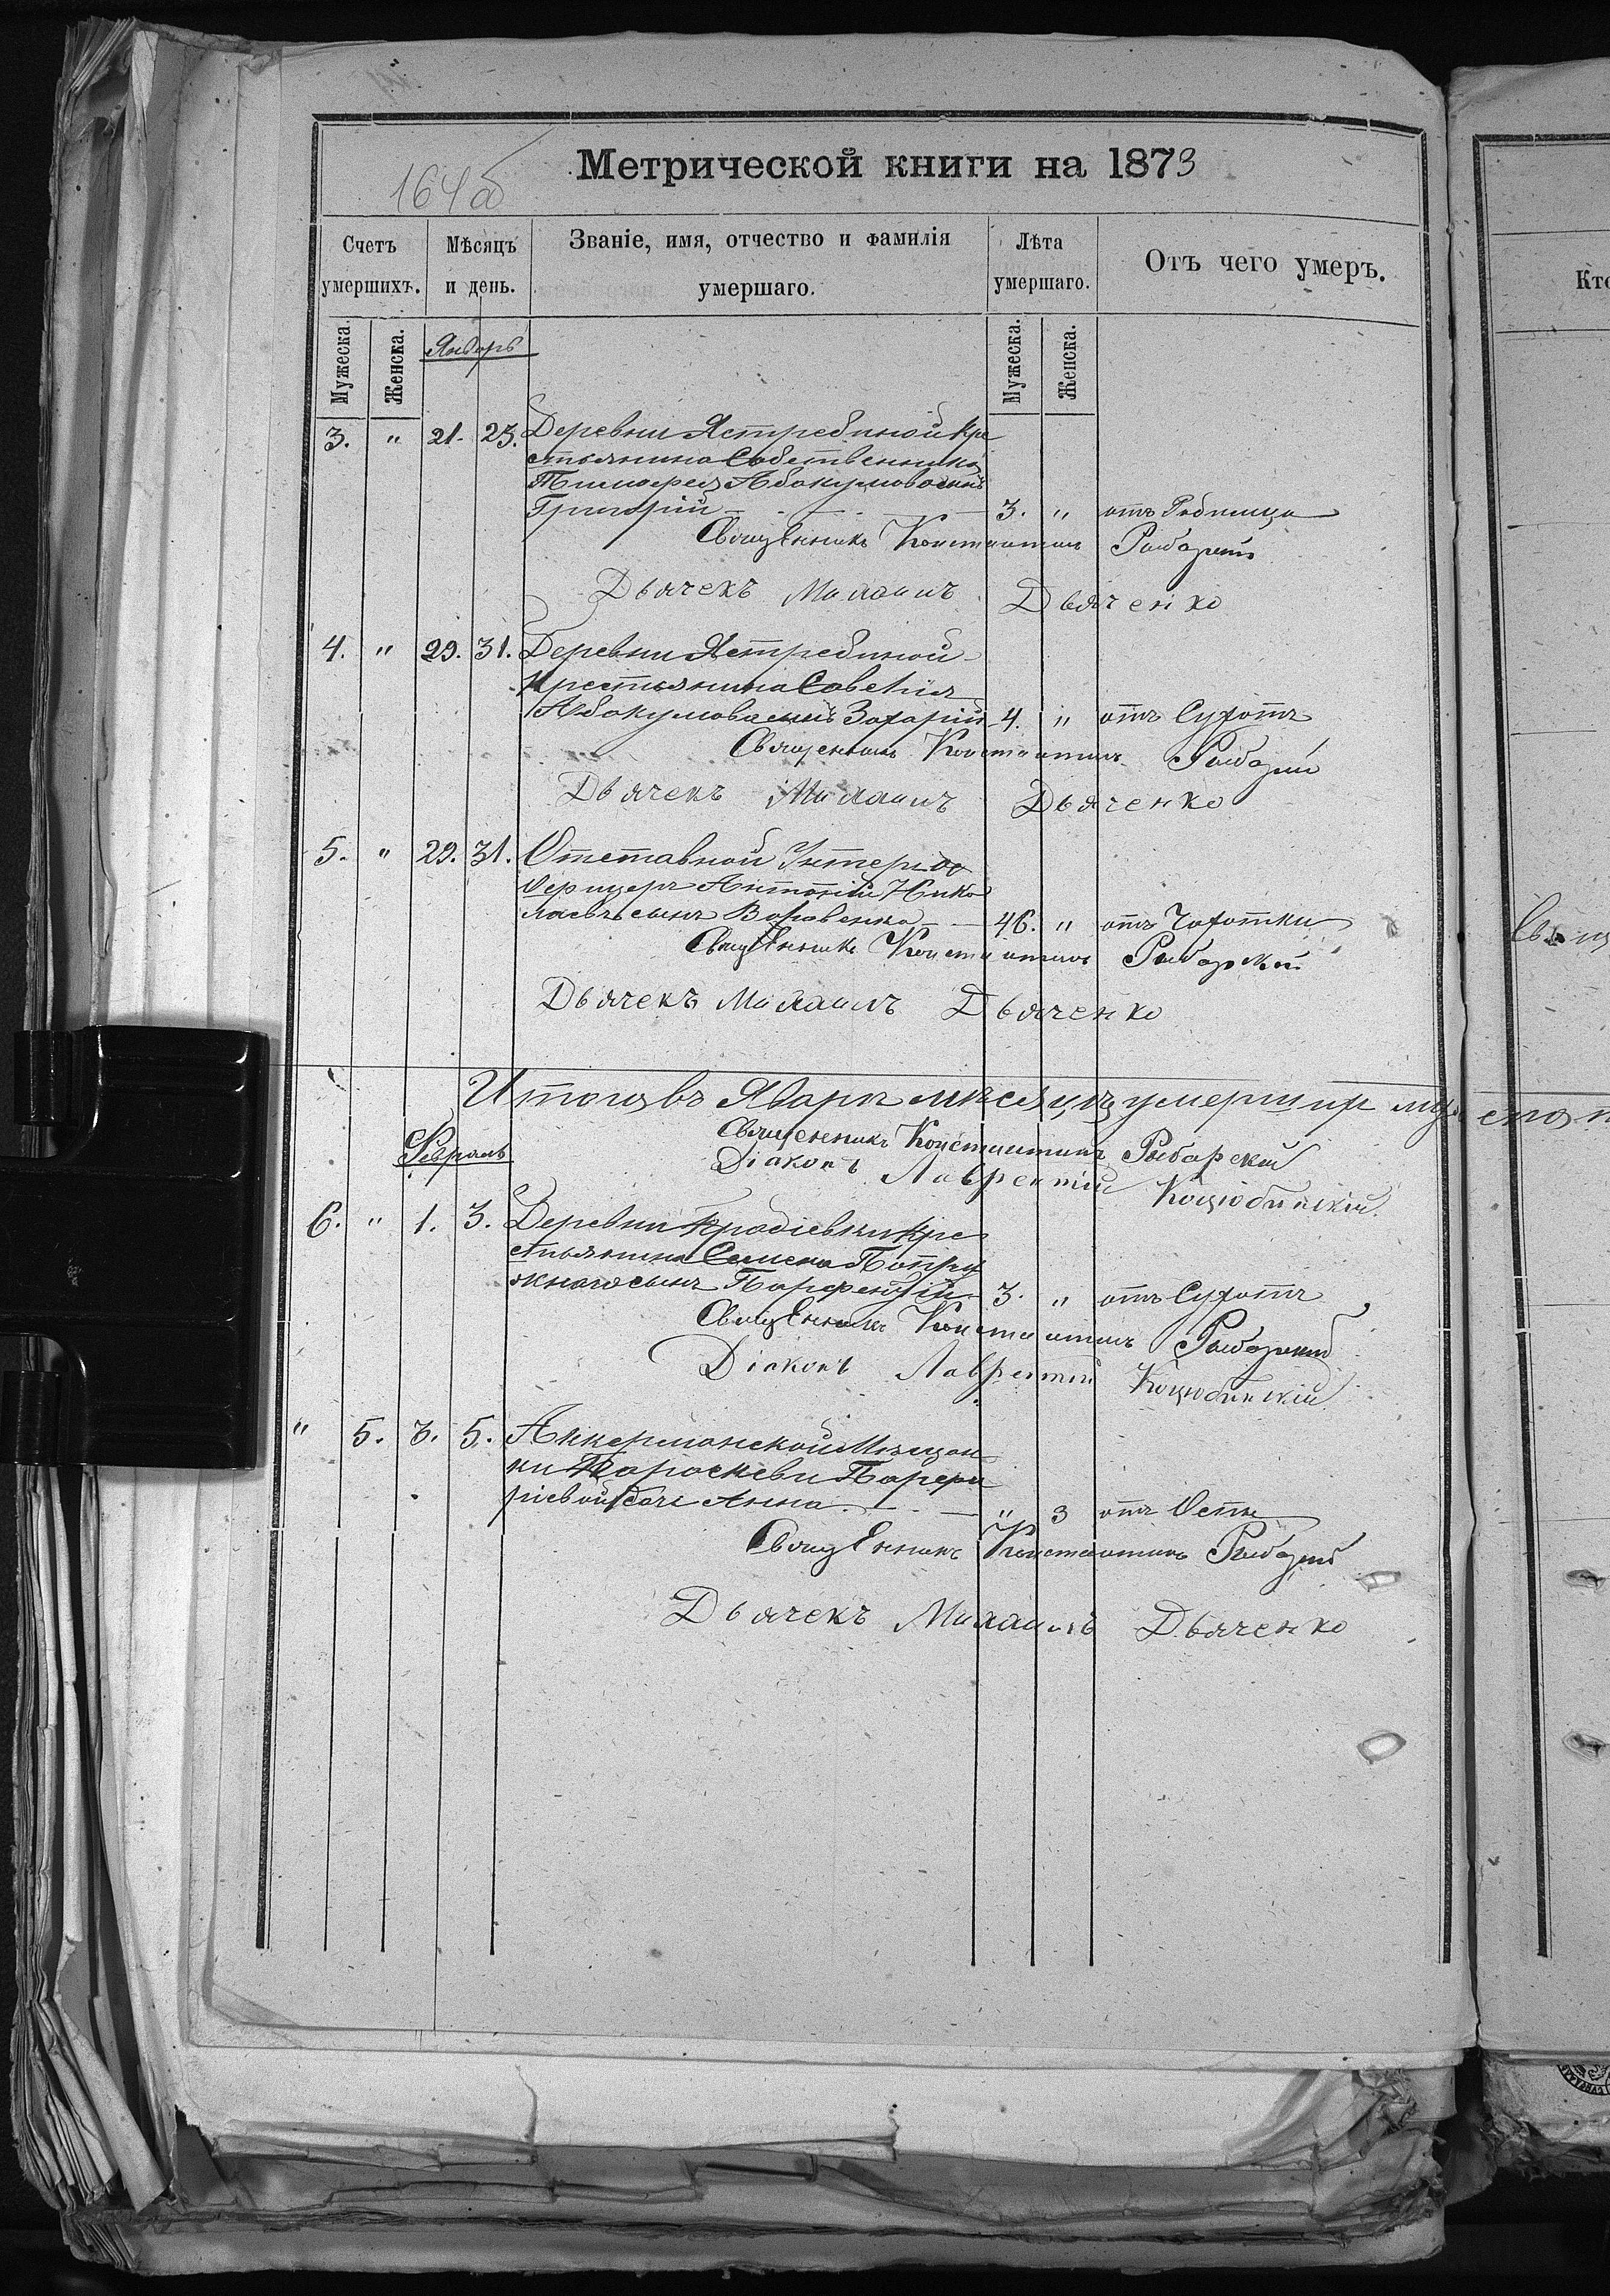 Метрической книги на 1873
164об
Счетъ умершихъ.
Мѣсяцъ и день.
Званіе, имя, отчество и фамилія умершаго.
Лѣта умершаго.
Отъ чего умеръ.
Мужеска. Женска. Январь Мужеска. Женска.
3. " 21. 23. Деревни Ястребиной кре
стьянина Собственника
Тимофея Абакумова сынъ
Григорій 3. " отъ
Священникъ Константинъ Рыбарскій
Дьячекъ Михаилъ Дьяченко
4. " 29. 31. Деревни Ястребиной
Крестьянина Савелія
Абакумова сынъ Захарій 4. " отъ Сухотъ
Священникъ Константинъ Рыбарскій
Дьячекъ Михаилъ Дьяченко
5. " 29. 31. Отставной Унтеръ
Офицеръ Антоній Нико
лаевъ сынъ 46. " отъ Чахотки
Священникъ Константинъ Рыбарскій
Дьячекъ Михаилъ Дьяченко
Итого въ Январѣ мѣсяцѣ умершихъ
Священникъ Константинъ Рыбарскій
Февраль
Діаконъ Лаврентій Коцюбинскій
6. " 1. 3. Деревни кре
стьянина Семена Попру
жнаго сынъ Парфентій 3. " отъ Сухотъ
Священникъ Константинъ Рыбарскій
Діаконъ Лаврентій Коцюбинскій
" 5. 3. 5. Аккерманской Мѣщан
ки Параскевы Парфи
ріевой дочь Анна " 3 отъ Оспы
Священникъ Константинъ Рыбарскій
Дьячекъ Михаилъ Дьяченко